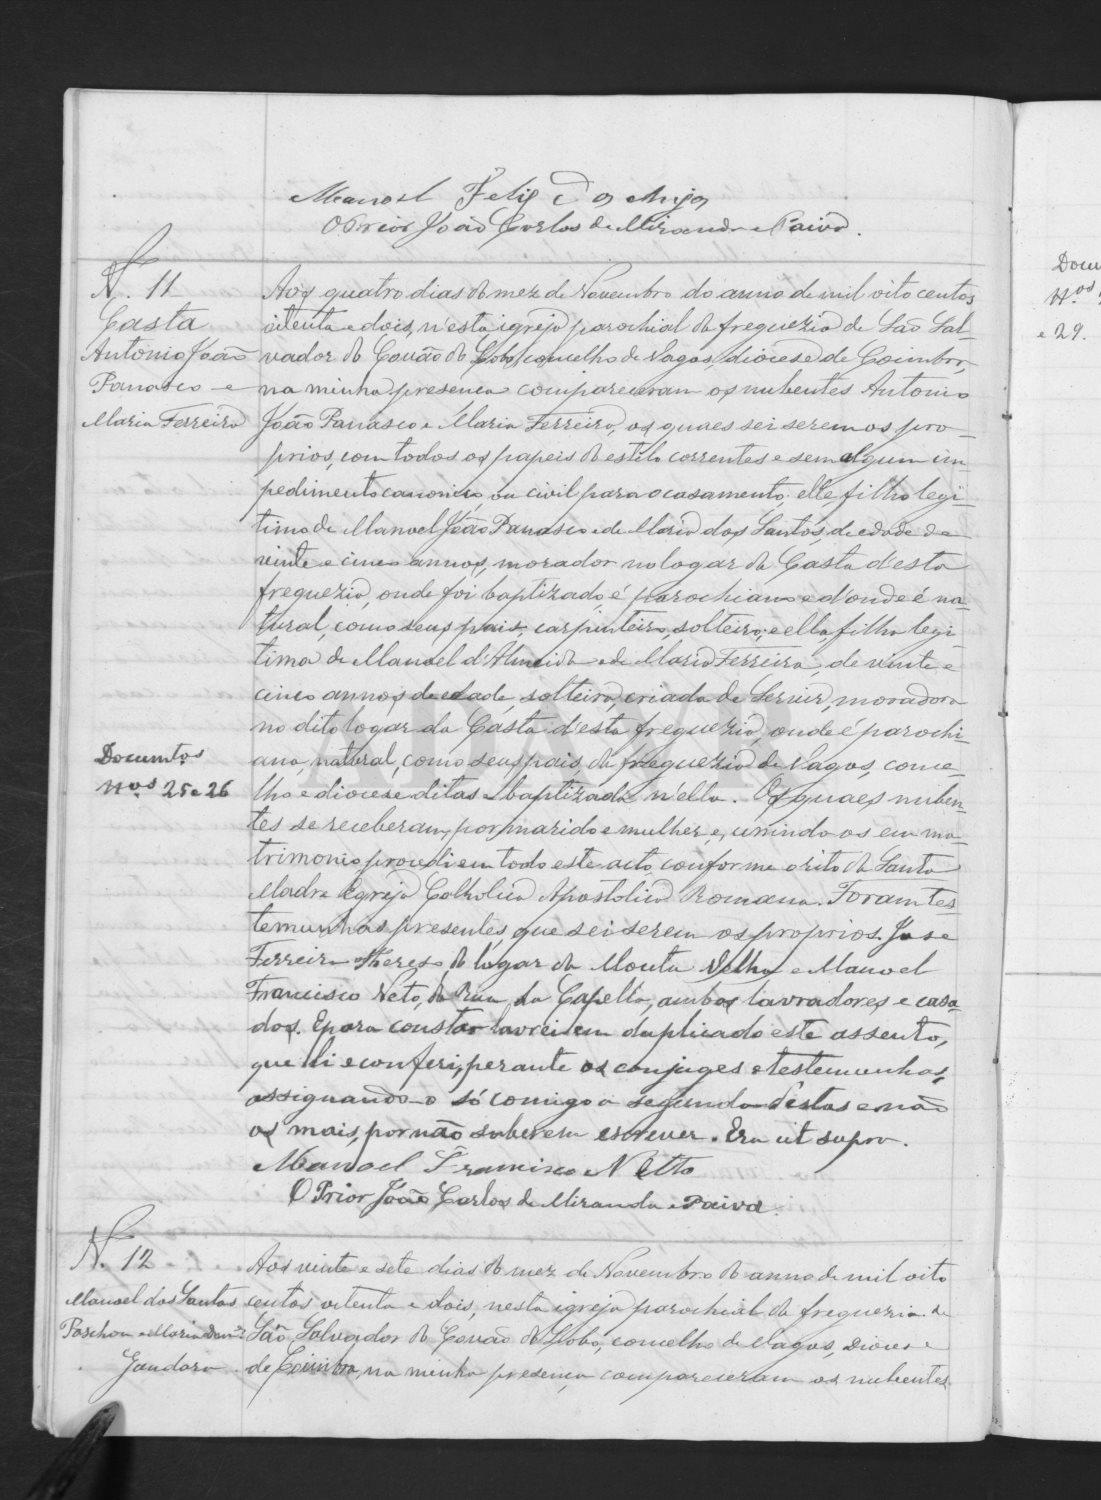 Manoel Felis da
O Prior João Carlos de Miranda e Paiva.
N. 11
Casta
Antonio João
Panasco e
Maria Ferreira
Aos quatro dias do mez de Novembro do anno de mil oito centos
oitenta e dois, n'esta igreja parochial da freguezia de São Sal-
vador do Covão do Lobo, concelho de Vagos, diocese de Coimbra,
na minha presença compareceram os nubentes Antonio
João Panasco e Maria Ferreira, os quaes sei serem os pro-
prios, com todos os papeis do estilo correntes e sem algum im-
pedimento canonico ou civil para o casamento; elle, filho legi-
timo de Manoel João Panasco e de Maria dos Santos, de edade de
vinte e cinco annos, morador no logar da Casta d'esta
freguezia, onde foi baptizado, é parochiano e d'onde é na-
tural, como seus pais, carpinteiro, solteiro; e ella, filha legi-
tima de Manoel d'Almeida e de Maria Ferreira, de vinte e
cinco annos de edade, solteira, criada de servir, moradora
no dito logar da Casta d'esta freguezia, onde é parochi-
ana, natural, como seus pais da freguezia de Vagos, conce-
lho e diocese ditas e baptizada n'ella. Os quaes nuben-
tes se receberam por marido e mulher e, unindo os em ma-
trimonio, procedi em todo este acto, conforme o rito da Santa
Madre Egreja Catholica Apostolica Romana. Foram tes-
temunhas presentes, que sei serem os proprios. José
Ferreira Thereso, do logar da Mouta Velha e Manoel
Francisco Neto, da Rua da Capella, ambos lavradores e casa-
dos. E para constar lavrei em duplicado este assento,
que li e conferi, perante os conjuges e testemunhas,
assignando-o só comigo a segunda d'estas e não
os mais, por não saberem escrever. Era ut supra.
Manoel Francisco Netto
O Prior João Carlos de Miranda e Paiva.
Documtos
Nos 25 e 26
N. 12
Manoel dos Santos
Paschoa e Maria
Gandara
Aos vinte e sete dias do mez de Novembro do anno de mil oito
centos oitenta e dois, nesta igreja parochial da freguezia de
São Salvador do Covão do Lobo, concelho de Vagos, Diocese
de Coimbra, na minha presença compareceram os nubentes
Docum
Nos
e 29.